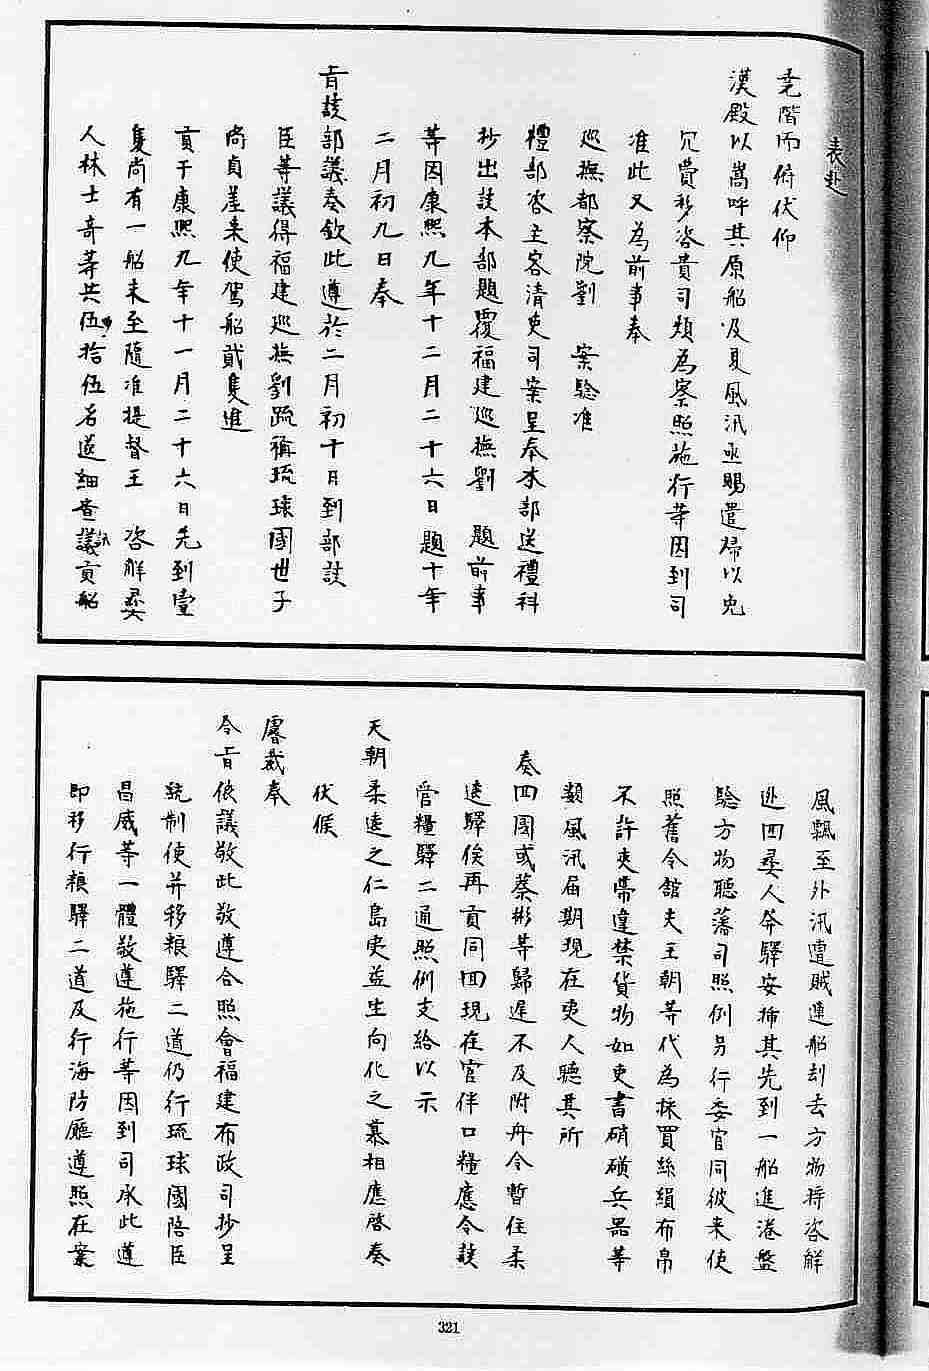 表赴
堯階而俯伏仰
漢殿以嵩呼其原船及夏風汛亟賜遣歸以免
冗費移咨貴司類為察照施行等因到司
准此又為前事奉
巡撫都察院劉 案驗准
禮部咨主客清吏司案呈奉本部送禮科
抄出該本部題覆福建巡撫劉 題前事
等因康熙九年十二月二十六日題十年
二月初九日奉
旨該部議奏欽此遵於二月初十日到部該
臣等議得福建巡撫劉疏稱琉球國世子
尚貞差来使駕船貳隻進
貢于康熙九年十一月二十六日先到壹
隻尚有一船未至隨准提督王 咨解彛
人林士奇等共伍拾伍名遂細查議訊貢船
風飄至外汛遭賊連船刦去方物將咨解
逃回彛人發驛安揷其先到一船進港盤
驗方物聽藩司照例另行委官同彼来使
照舊令舘夫王朝等代為採買絲絹布帛
不許夾帶違禁貨物如史書硝磺兵器等
類風汛届期現在夷人聽其所
奏回國或蔡彬等歸遲不及附舟令暫住柔
遠驛俟再貢同回現在官伴口糧應令該
管糧驛二通照例支給以示
天朝柔遠之仁島夷益生向化之慕相應啓奏
伏候
睿裁奉
令旨依議敬此敬遵合照會福建布政司抄呈
統制使并移粮驛二道仍行琉球國陪臣
昌威等一體敬遵施行等因到司承此遵
即移行粮驛二道及行海防廳遵照在案
321